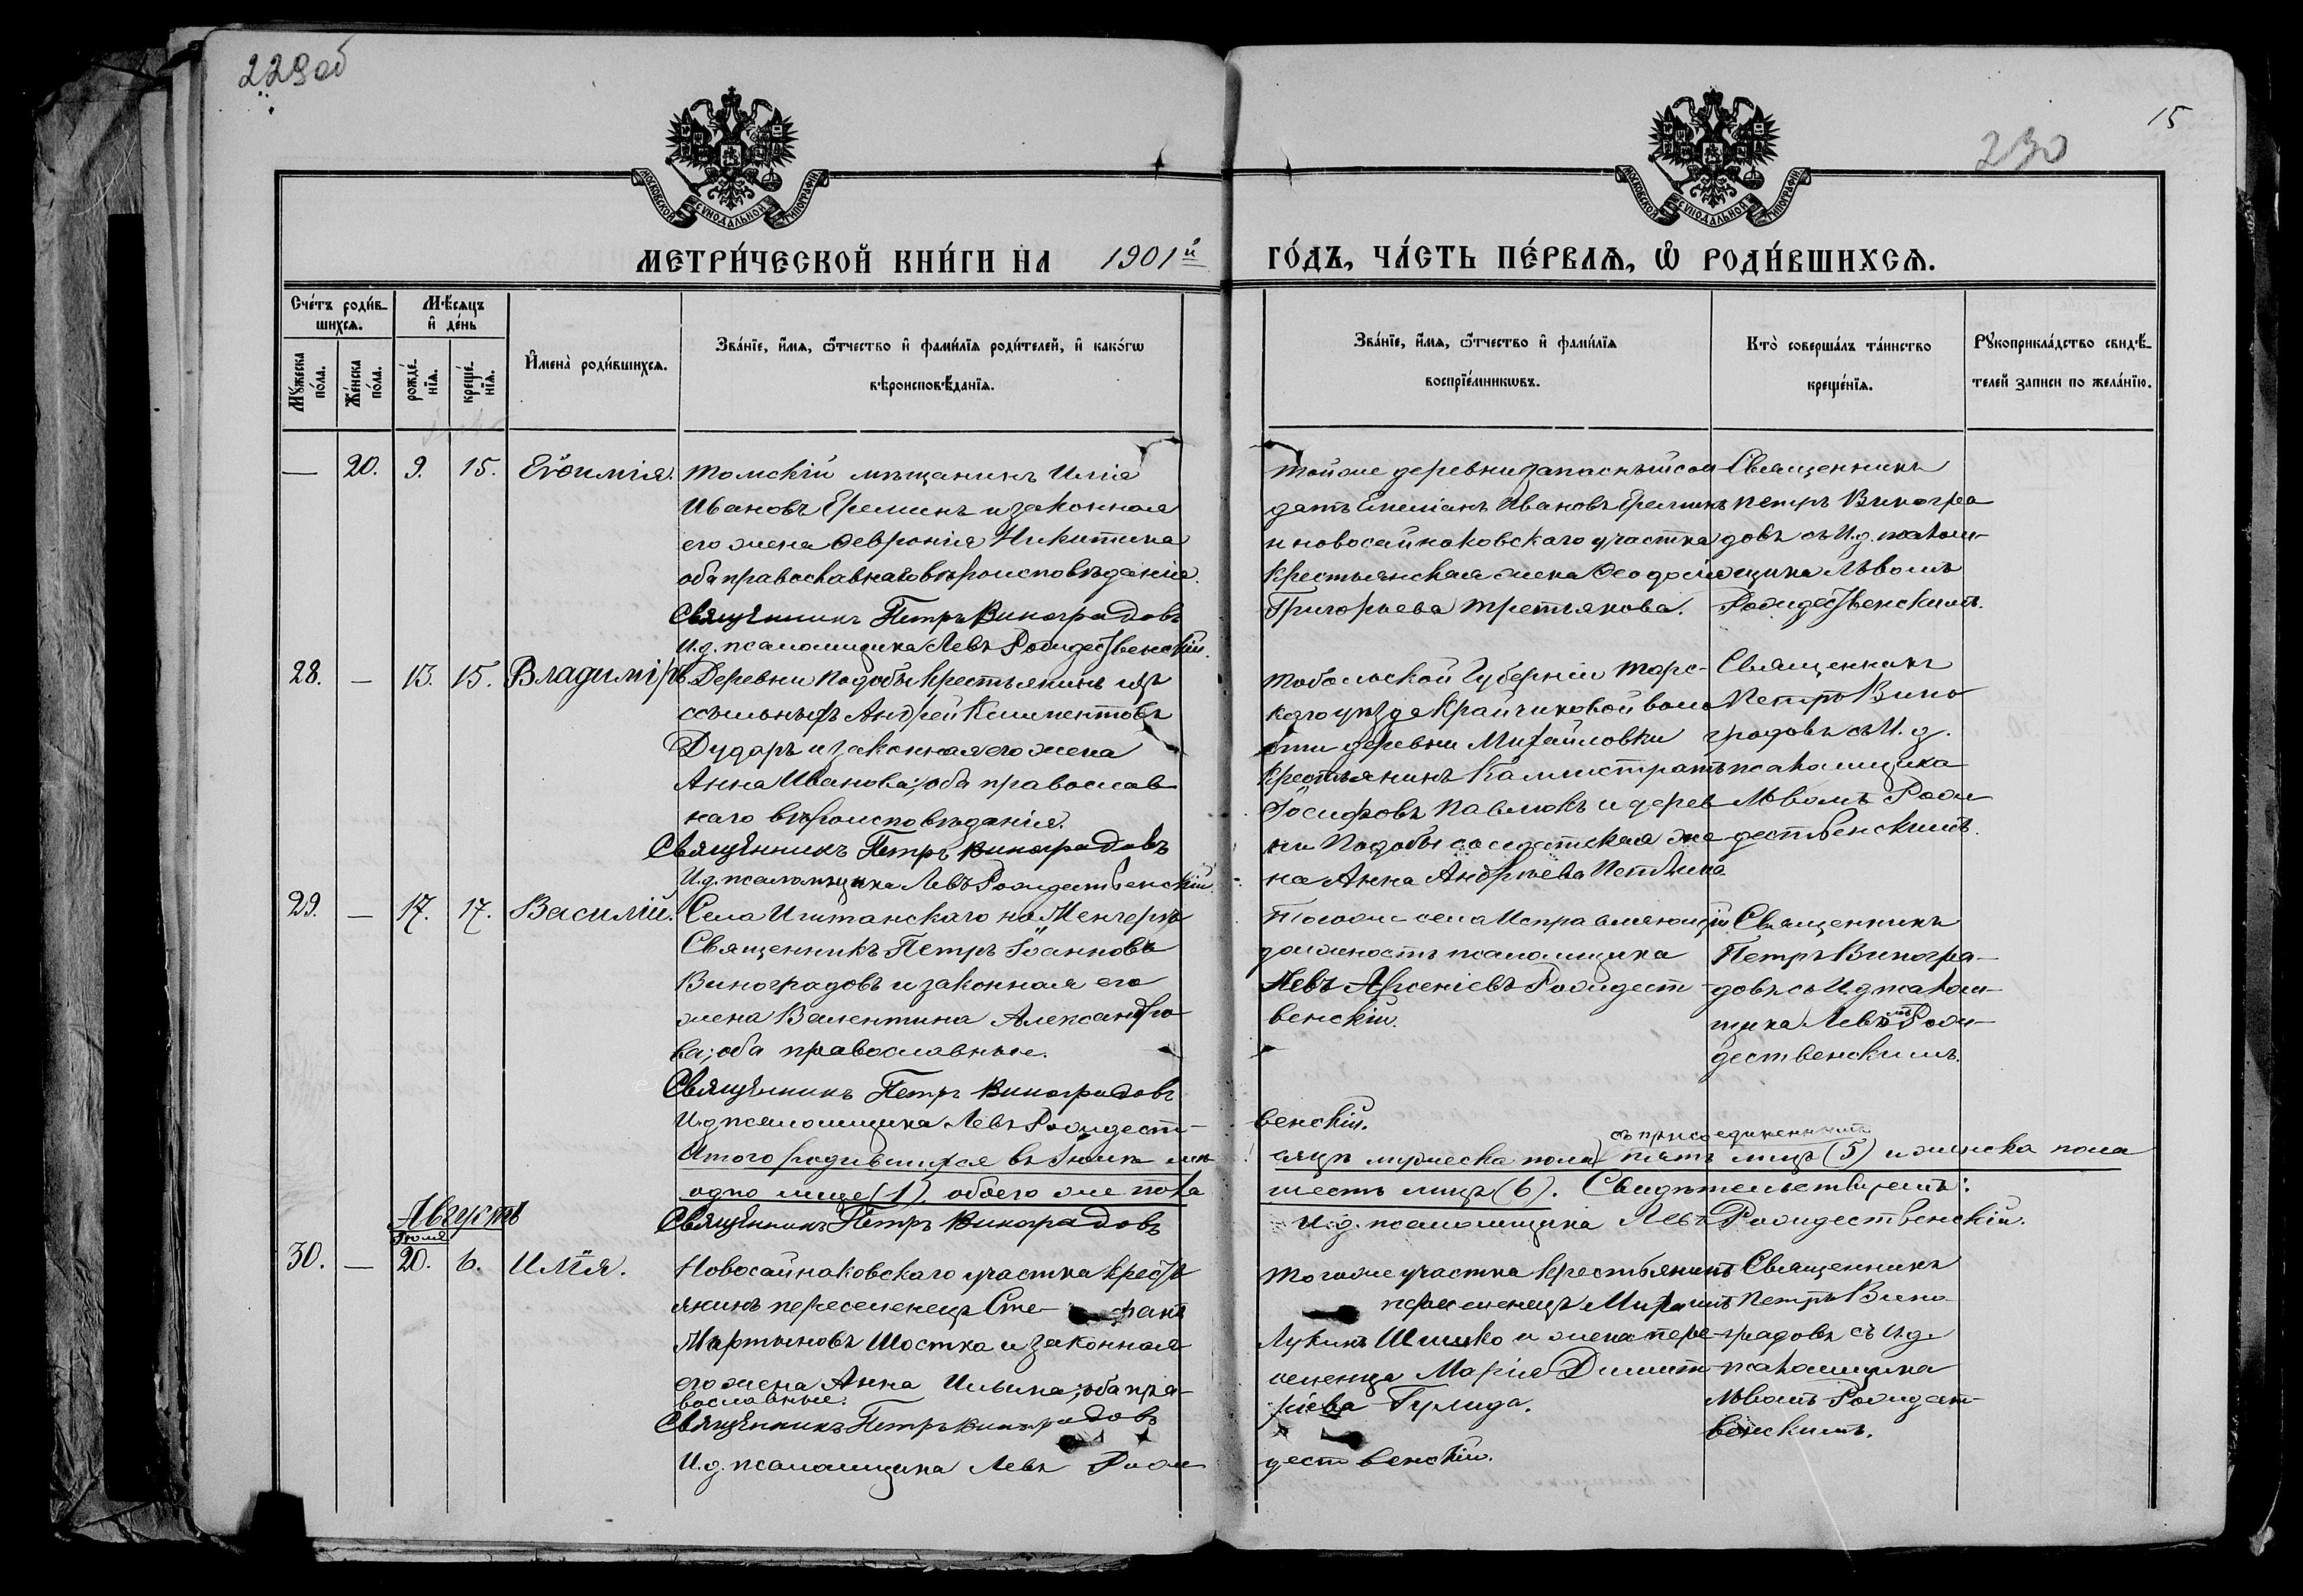 229об
15
230
МОСКОВСКОЙ СУНОДАЛЬНОЙ ТИПОГРАФИИ
МОСКОВСКОЙ СУНОДАЛЬНОЙ ТИПОГРАФИИ
МЕТРИ́ЧЕСКОЙ КНИ́ГИ НА 1901й ГО́ДЪ, ЧА́СТЬ ПЕ́РВАѦ, Ѡ҆ РОДИ́ВШИХСѦ.
Сче́тъ роди́в-
шихсѧ.
Мѣ́сяцъ
и҆ де́нь
Мꙋ́жеска
по́ла.
Же́нска
по́ла.
рожде́-
нїѧ.
креще́-
нїѧ.
И҆мена̀ роди́вшихсѧ.
Зва́нїе, и҆́мѧ, ѻ҆́тчество и҆ фами́лїѧ роди́телей, и҆ како́гѡ
вѣроисповѣ́данїѧ.
Зва́нїе, и҆́мѧ, ѻ҆́тчество и҆ фами́лїѧ
воспрїе́мникѡвъ.
Кто̀ соверша́лъ та́инство
креще́нїѧ.
Рꙋкоприкла́дство свидѣ́-
телей записи по жела́нїю.
— 20. 9. 15. Евѳимія. Томскій мѣщанинъ Илія
Ивановъ Ереминъ и законная
его жена Февронія Никитина
оба православнаго вѣроисповѣданія.
Священникъ Петръ Виноградовъ
И.д. псаломщика Левъ Рождественскій.
Тойже деревни запасный сол-
датъ Емеліанъ Ивановъ Ереминъ
и новосайнаковскаго участка
крестьянская жена Ѳеодосія
Григорьева Третьякова.
Священникъ
Петръ Виногра
довъ съ И.д. псалом-
щика Львомъ
Рождественскимъ.
28. — 13. 15. Владиміръ. Деревни Подобы крестьянинъ изъ
ссыльныхъ Андрей Климентовъ
Дударъ и законная его жена
Анна Иванова; оба православ
наго вѣроисповѣданія.
Священникъ Петръ Виноградовъ
И.д. псаломщика Левъ Рождественскій.
Тобольской Губерніи Тарс-
каго уѣзда Крайчиковой воло
сти деревни Михайловки
крестьянинъ Каллистратъ
Іосифовъ Павлюкъ и дерев
ни Подобы солдатская же
на Анна Андреева
Священникъ
Петръ Вино
градовъ съ И.д.
псаломщика
Львомъ Рож
дественскимъ.
29. — 17. 17. Василій. Села Иштанскаго на
Священникъ Петръ Іоанновъ
Виноградовъ и законная его
жена Валентина Александро
ва; оба православные.
Священникъ Петръ Виноградовъ
И.д. псаломщика Левъ Рождест-
венскій.
Тогоже села Исправляющій
должность псаломщика
Левъ Арсеніевъ Рождест
венскій.
Священникъ
Петръ Виногра-
довъ съ И.д. псалом-
щика Львомъ Рож-
дественскимъ.
Итого родившихся въ Іюлѣ мѣ
сяцѣ мужеска пола съ присоединеннымъ пять лицъ (5) и женска пола
одно лице (1), обоего же пола
шесть лицъ (6). Свидѣтельствуемъ:
Священникъ Петръ Виноградовъ
И.д. псаломщика Левъ Рождественскій.
Августъ
Іюля
30. — 20. 6. Илія. Новосайнаковскаго участка крест
янинъ переселенецъ Сте- фанъ
Мартыновъ Шостка и законная
его жена Анна Ильина; оба пра-
вославные.
Священникъ Петръ Виноградовъ
И.д. псаломщика Левъ Рож
дественскій.
Тогоже участка крестьянинъ
переселенецъ Михаилъ
Лукинъ Шишко и жена пере-
селенца Марія Димит
ріева Гулида.
Священникъ
Петръ Вино
градовъ съ И.д.
псаломщика
Львомъ Рождест-
венскимъ.